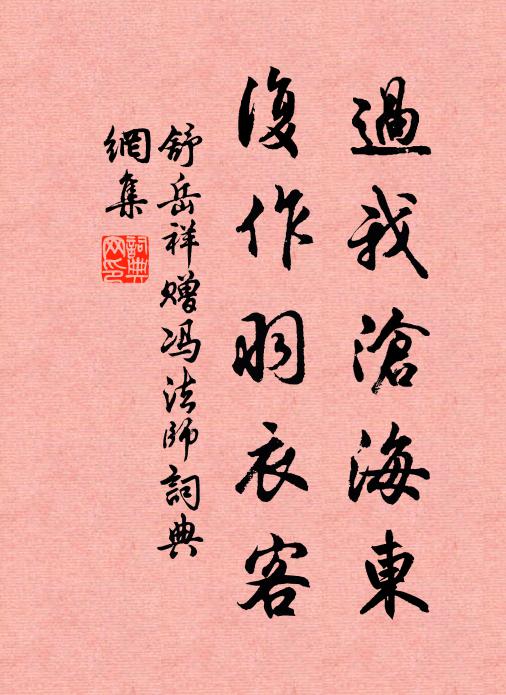 過我滄海東
復作羽衣客
舒岳祥赠冯法師詞典
網集
詞典
网印